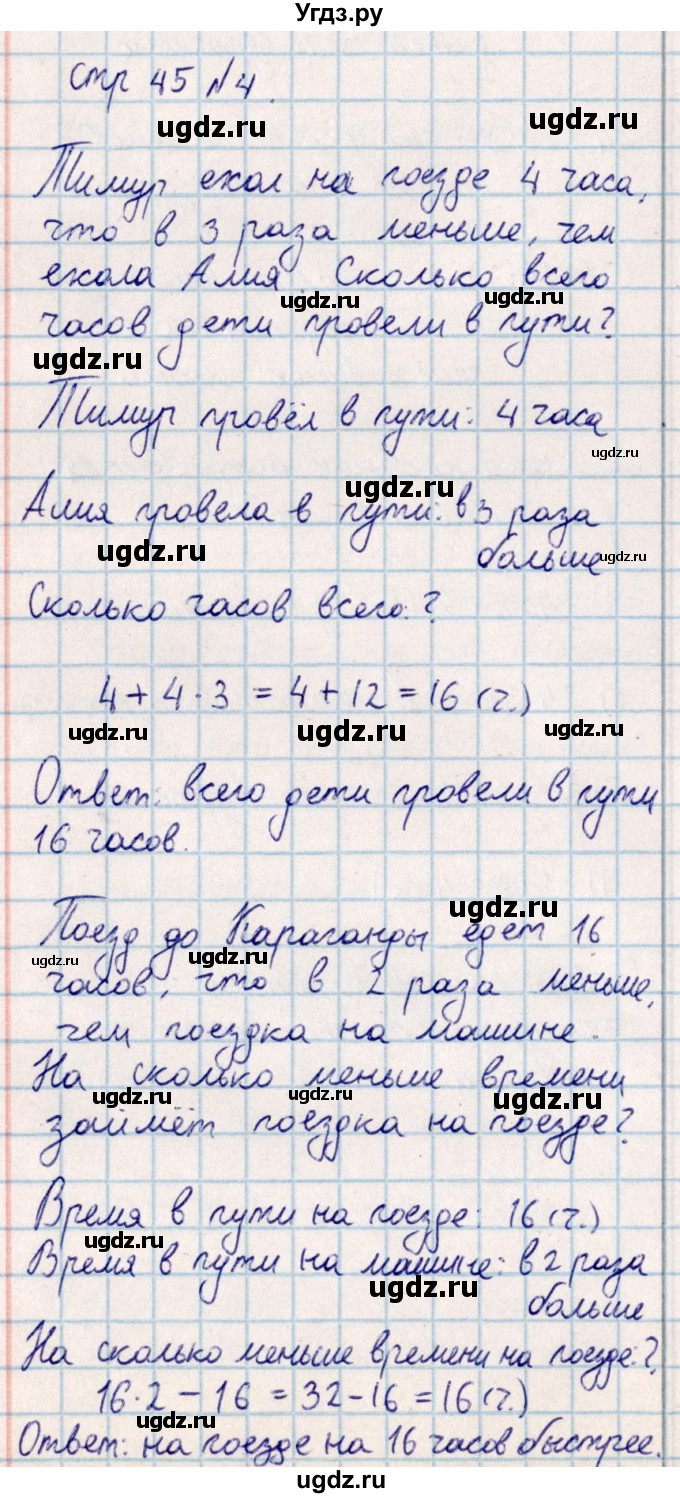 Угдз.ру
стр 45 №4.
ugdz.ru
ugdz.ru
Тимур ехал на поезде 4 часа,
что в 3 раза меньше, чем
ехала Алия. Сколько всего
ugdz.ru
ugdz.ru
часов дети провели в пути?
ugdz.ru
Тимур провёл в пути: 4 часа
ugdz.ru
ugdz.ru
Алия провела в пути: в 3 раза
ugdz.ru
больше
ugdz.ru
Сколько часов всего: ?
4 + 4 · 3 = 4 + 12 = 16 (ч.)
ugdz.ru
ugdz.ru
ugdz.ru
Ответ: всего дети провели в пути
16 часов.
ugdz.ru
Поезд до Караганды едет 16
ugdz.ru
ugdz.ru
часов, что в 2 раза меньше,
чем поездка на машине.
На сколько меньше времени
ugdz.ru
ugdz.ru
ugdz.ru
займёт поездка на поезде?
Время в пути на поезде: 16 (ч.)
ugdz.ru
Время в пути на машине: в 2 раза
ugdz.ru
больше
На сколько меньше времени на поезде: ?
16 · 2 - 16 = 32 - 16 = 16 (ч.)
ugdz.ru
ugdz.ru
Ответ: на поезде на 16 часов быстрее.
ugdz.ru